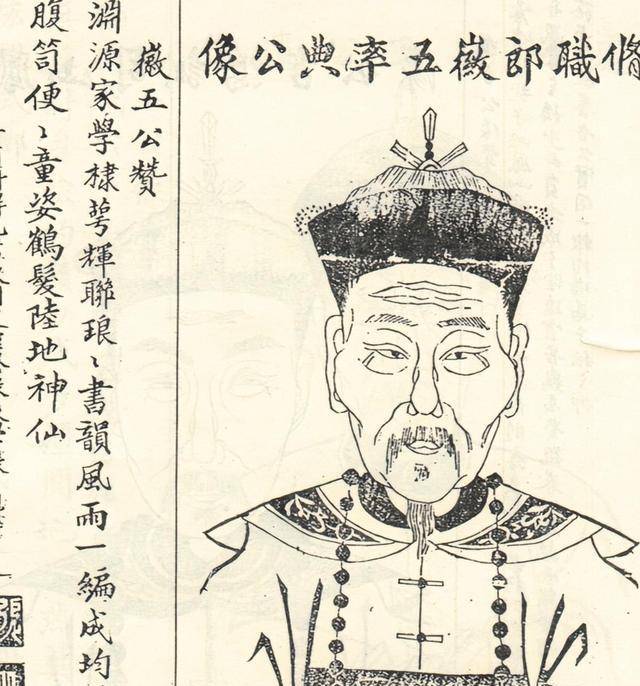 脩職郎徽五率典公像
徽五公贊
淵源家學棣萼輝聯琅〻書韻風雨一編成均
腹笥便〻童姿鶴髮陸地神仙